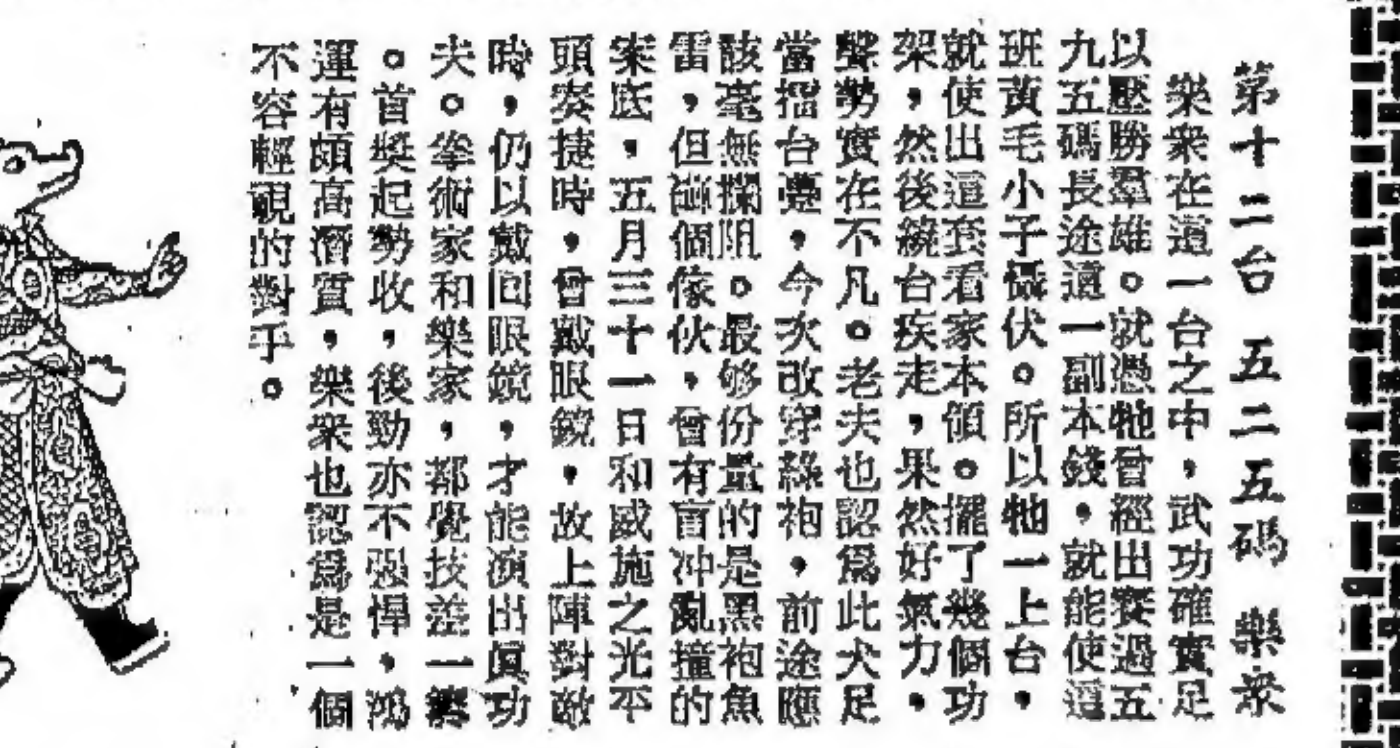 第十二台 五二五碼 樂衆
樂衆在這一台之中,武功確實足
以壓勝羣雄。就憑牠曾經出賽過五
九五碼長途這一副本錢,就能使這
班黃毛小子懾伏。所以牠一上台,
就使出這套看家本領。擺了幾個功
架,然後繞台疾走,果然好氣力,
聲勢實在不凡。老夫也認爲此犬足
當擂台躉,今次改穿綠袍,前途應
該毫無攔阻。最够份量的是黑袍魚
雷,但這個傢伙,曾有盲冲亂撞的
案底,五月三十一日和威施之光平
頭奏捷時,曾戴眼鏡,故上陣對敵
時,仍以戴回眼鏡,才能演出眞功
夫。拳術家和樂家,都覺技差一籌
。首獎起勢收,後勁亦不强悍,鴻
運有頗高潛質,樂衆也認爲是一個
不容輕視的對手。